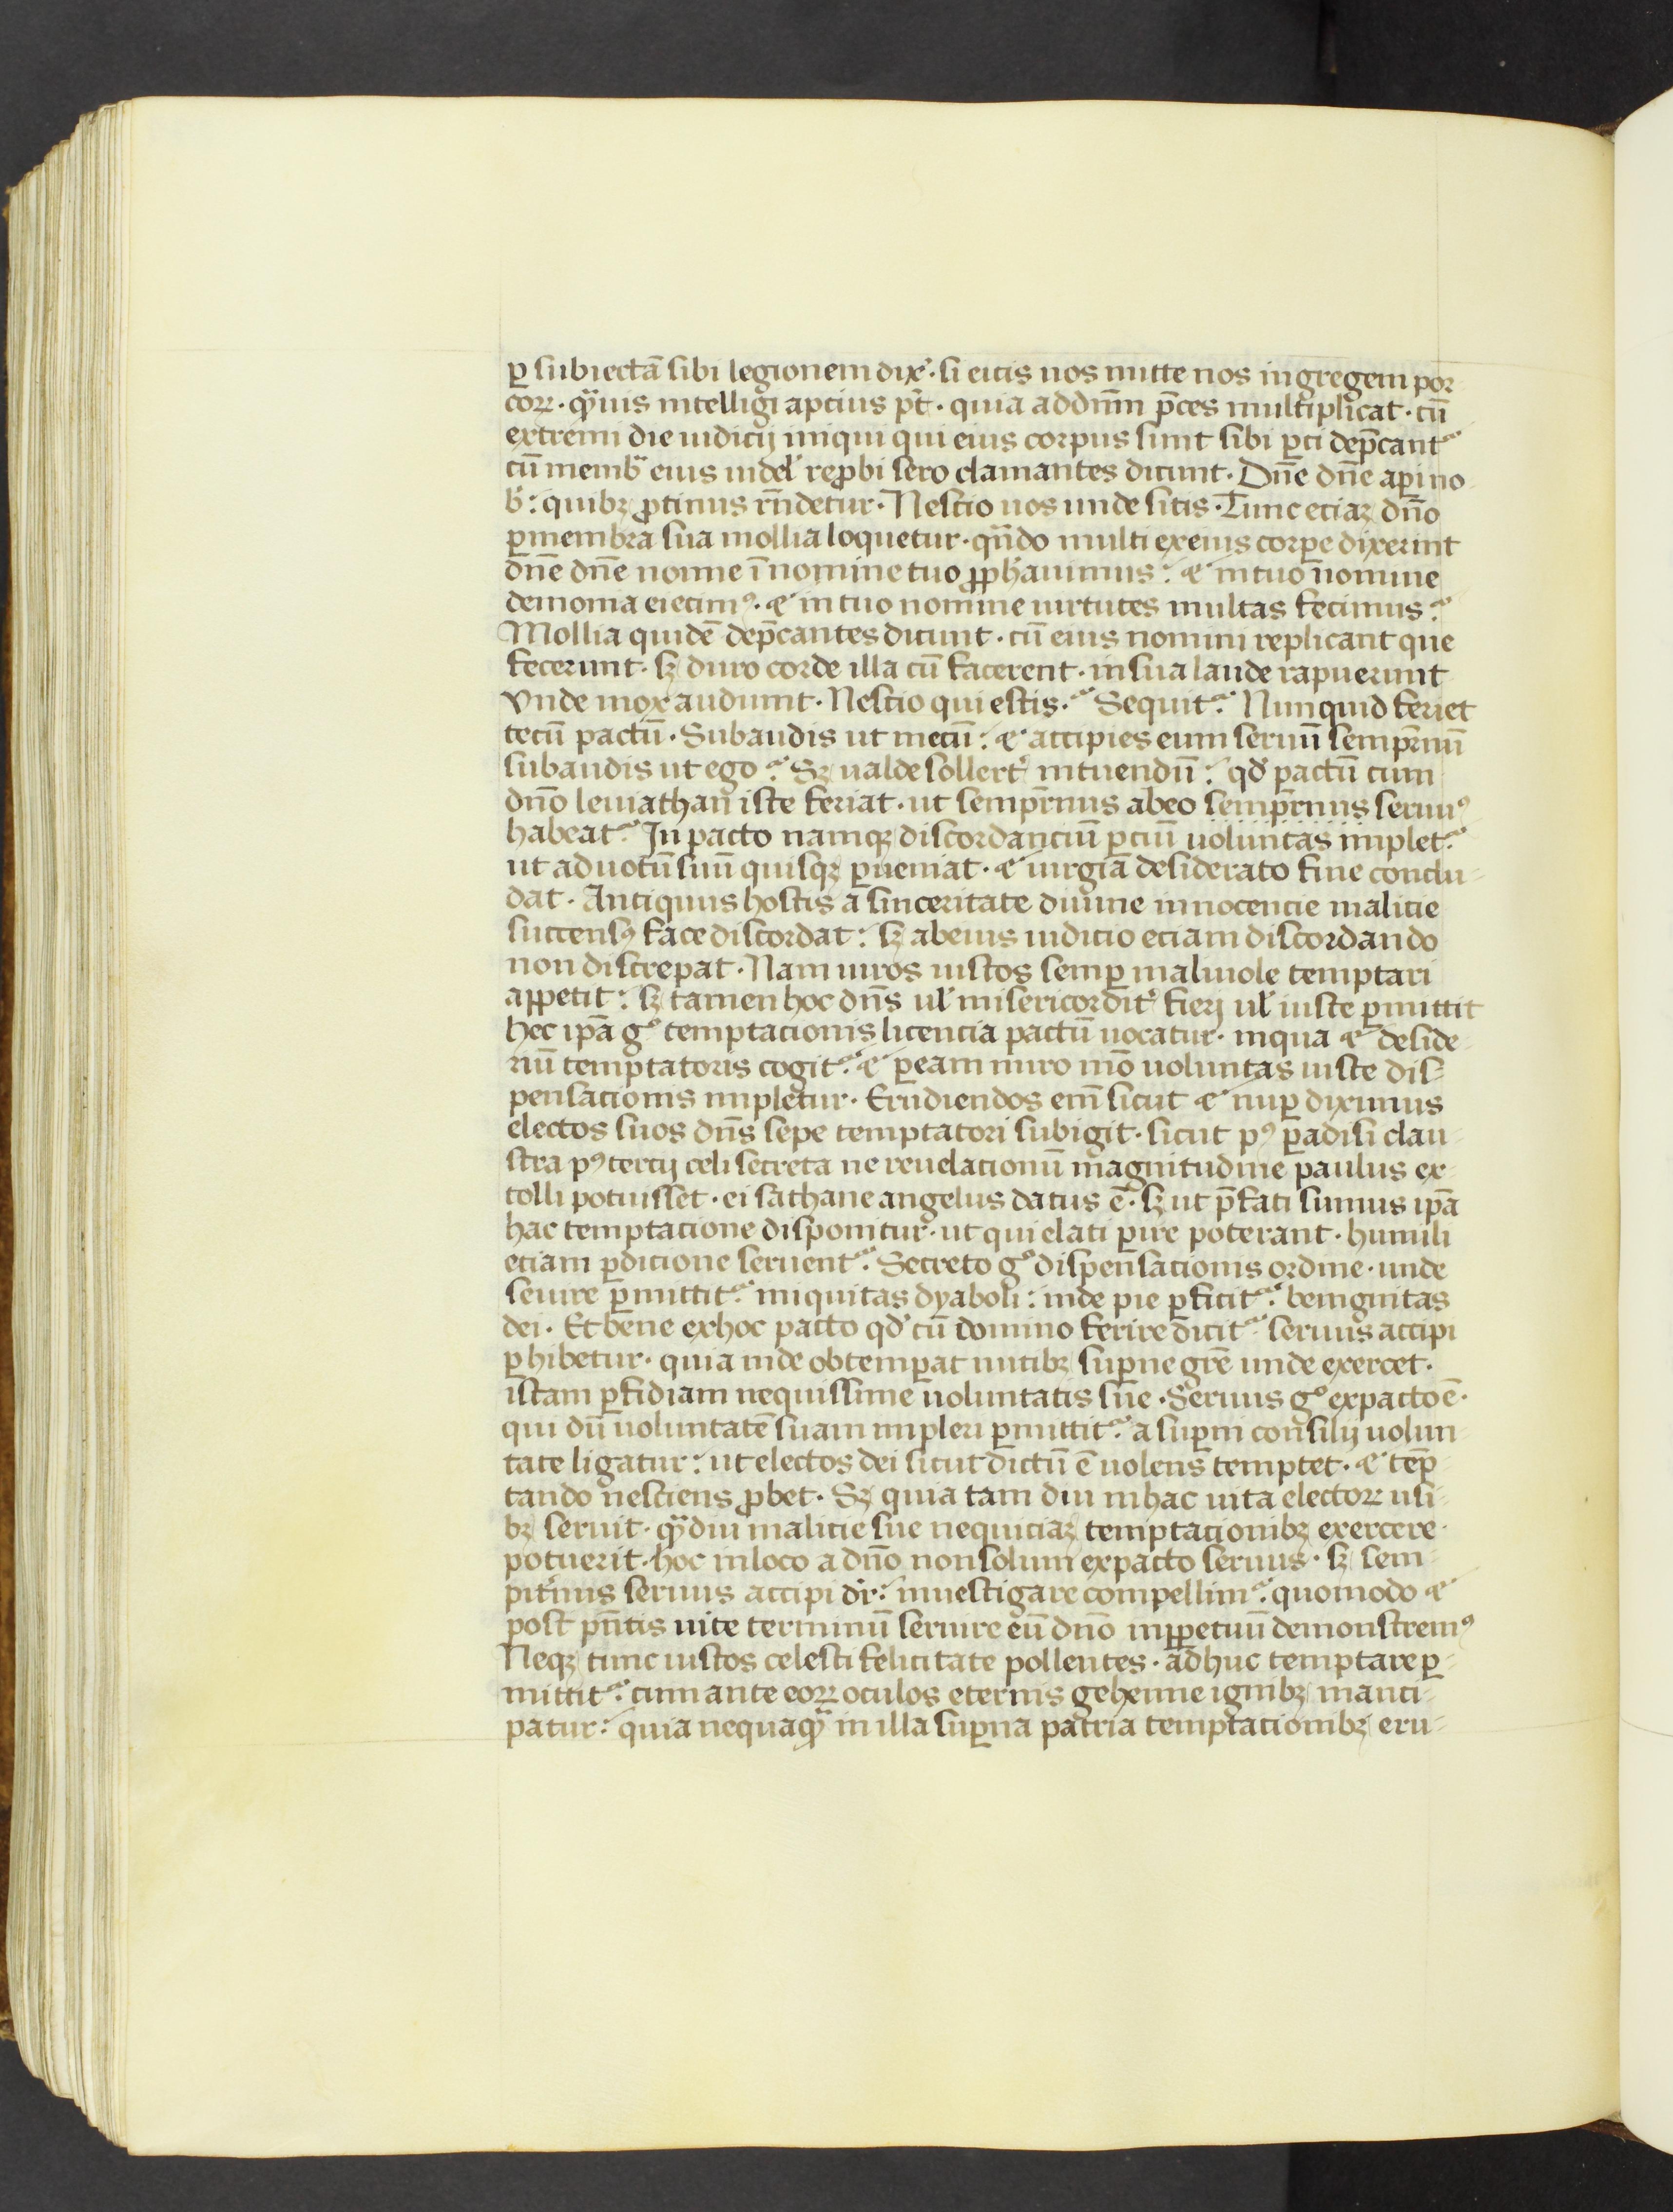 ꝑ subiectã sibi legionem dixͬ· si eicis nos mitte nos in gregem por
coꝝ· qͣuis intelligi apcius pͭ· quia ad dnm̃ p̃ces multiplicat· cũ
extremi die iudicij iniqui qui eius corpus sunt sibi ꝑci dep̃cantᷣ
cũ membͣ eius uidelꝫ reꝓbi sero clamantes dicunt· Dñe dñe aꝑi no
bˢ: quibꝫ ꝓtinus rñdetur· Nescio uos unde sitis· Tunc eciaꝫ dño
ꝑ membra sua mollia loquetur· qñdo multi ex eius corꝑe dixerint
dñe dñe nonne ĩ nomine tuo ꝓph̃auimus: ⁊ in tuo nomine
demonia eiecimꝰ· ⁊ in tuo nomine uirtutes multas fecimus:
Mollia quidẽ dep̃cantes dicunt· cũ eius nomini replicant que
fecerunt· sꝫ duro corde illa cũ facerent· in sua laude rapuerunt
Vnde mox audiunt· Nescio qui estis· Sequitᷣ· Nunquid feriet
tecũ pactũ· Subaudis ut mecũ: ⁊ accipies eum seruũ semp̃rnũ
subaudis ut ego· Sꝫ ualde sollertͬ intuendũ: qđ pactũ cum
dño leuiathan iste feriat· ut semp̃rnus ab eo semp̃rnus seruuꝰ
habeatᷣ· In pacto namqꝫ discordanciũ ꝑciũ uoluntas impletᷣ
ut ad uotũ suũ quisqꝫ ꝑueniat· ⁊ iurgiã desiderato fine conclu
dat· Antiquus hostis a sinceritate diuine innocencie malicie
succensꝰ face discordat: sꝫ ab eius iudicio eciam discordando
non discrepat· Nam uiros iustos semꝑ maliuole temptari
appetit: sꝫ tamen hoc dñs ul̛ misericorditͬ fieri ul̛ iuste ꝑmittit
hec ip̃a gͦ temptacionis licencia pactũ uocatur· in qua ⁊ deside
riũ temptatoris cogitᷣ· ⁊ ꝑ eam miro mõ uoluntas iuste dis
pensacionis impletur· Erudiendos em̃ sicut ⁊ nuꝑ diximus
electos suos dñs sepe temptatori subigit· sicut pꝰ ꝑadisi clau
stra pꝰ tercij celi secreta ne reuelacionũ magnitudine paulus ex
tolli potuisset· ei sathane angelus datus ẽ· sꝫ ut p̃fati sumus ip̃a
hac temptacione disponitur· ut qui elati ꝑire poterant· humili
eciam ꝑdicione seruentᷣ· Secreto gͦ dispensacionis ordine· unde
seuire ꝑmittitᷣ iniquitas dyaboli: inde pie ꝑficitᷣ benignitas
dei· Et bene ex hoc pacto qđ cũ domino ferire dicitᷣ seruus accipi
ꝑhibetur· quia inde obtemꝑat nutibꝫ suꝑne gr̃e unde exercet·
istam ꝑfidiam nequissime uoluntatis sue· Seruus gͦ ex pacto ẽ·
qui dũ uoluntatẽ suam impleri ꝑmittitᷣ a suꝑni consilij uolun
tate ligatur: ut electos dei sicut dictũ ẽ uolens temptet· ⁊ tẽp
tando nesciens ꝓbet· Sꝫ quia tam diu in hac uita electoꝝ usi
bꝫ seruit· qͣdiu malicie sue nequiciaꝫ temptacionibꝫ exercere·
potuerit· hoc in loco a dño non solum ex pacto seruus· sꝫ sem
pitͬnus seruus accipi dr̃: inuestigare compellimᷣ quomodo ⁊
post pñtis uite terminũ seruire eũ dño in ꝑpetuũ demonstremꝰ
Neqꝫ tunc iustos celesti felicitate pollentes· adhuc temptare ꝑ
mittitᷣ· cum ante eoꝝ oculos eternis gehenne ignibꝫ manci
patur: quia nequaqͣ in illa suꝑna patria temptacionibꝫ eru